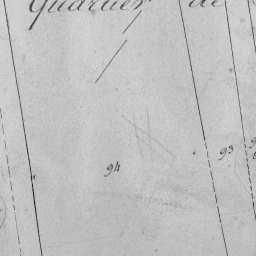 Quartier de
94
93